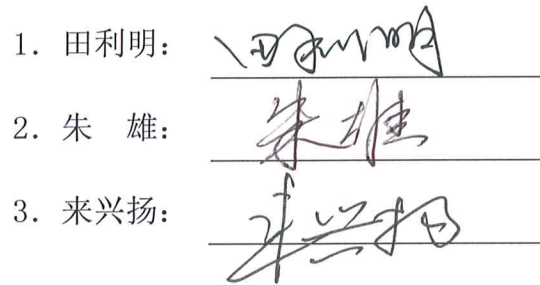 1. 田利明： 田利明
2. 朱　雄： 朱雄
3. 来兴扬： 来兴扬